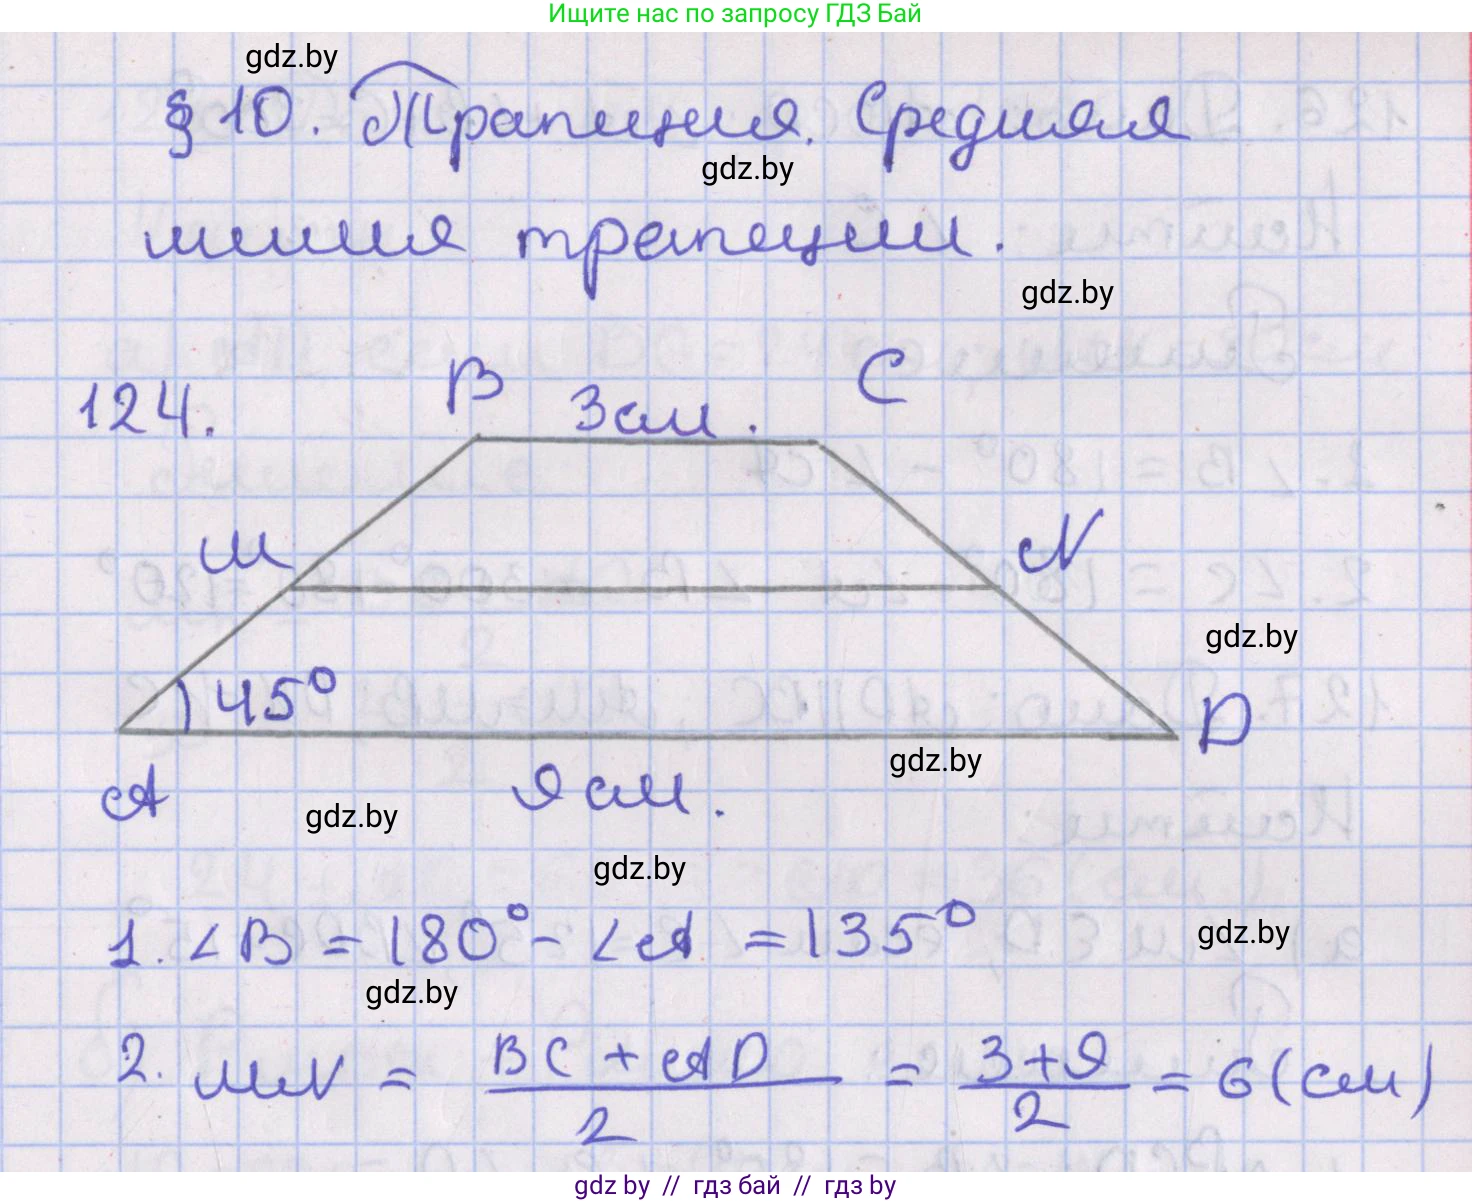 Ищите нас по запросу ГДЗ Бай
gdz.by
§ 10. Трапеция. Средняя
gdz.by
линия трапеции.
gdz.by
124.
B
3 см.
C
M
N
gdz.by
45°
D
gdz.by
A
9 см.
gdz.by
gdz.by
1. ∠B = 180° - ∠A = 135°
gdz.by
gdz.by
2. MN = \frac{BC + AD}{2} = \frac{3+9}{2} = 6 (см)
gdz by // гдз бай // гдз by